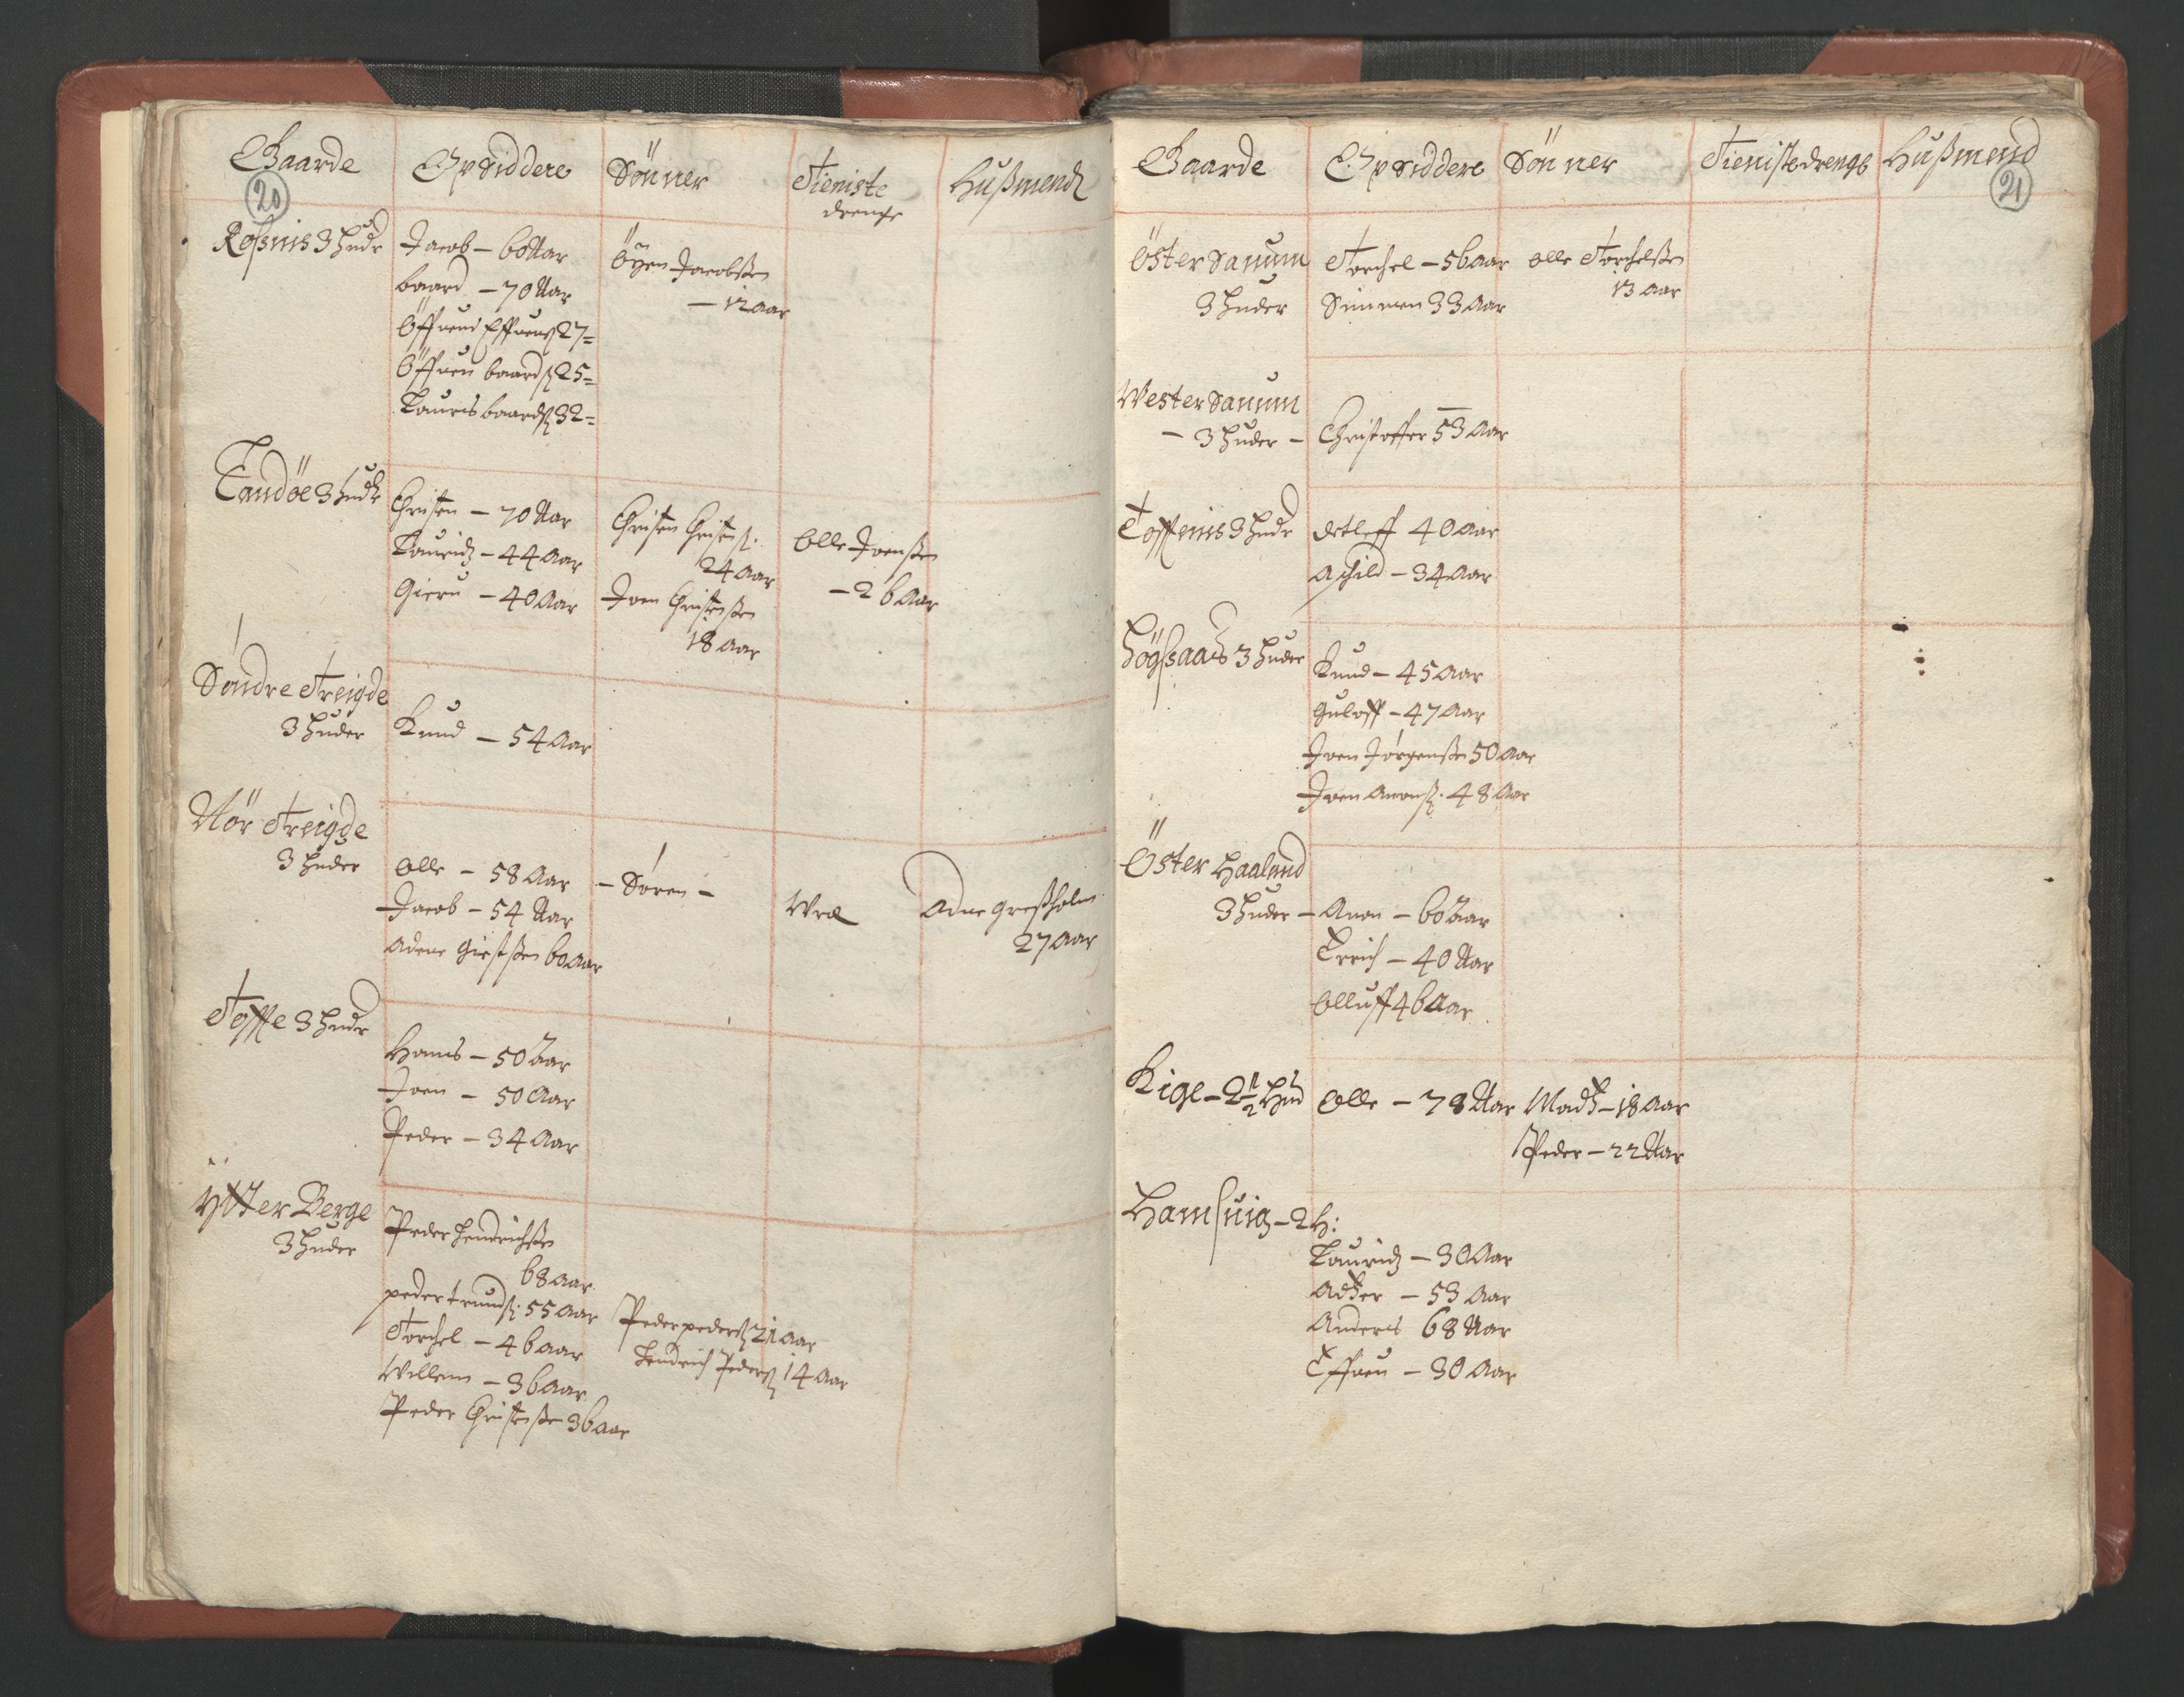 Gaarde Opsiddere Sönner Tieniste drenge Hußmend
20
Roßnis 3 Hudr
Jacob – 60 Aar
Baard – 70 Aar
Öffuend Effuens 27 =
Öffuen Baards 25 =
Lauris Baards 32 =
Öyen Jacobßen
– 12 aar
Tandöe 3 Hudr
Christen – 70 Aar
Lauridz – 44 Aar
Gieru – 40 Aar
Christen Christens:
24 Aar
Joen Christenßen
18 Aar
Olle Joenßen
– 26 Aar
Söndre Treigde
3 Huder
Knud – 54 Aar
Nör Treigde
3 Huder
Olle – 58 Aar
Jacob – 54 Aar
Adene 60 Aar
– Sören –
Adne Greßholm
27 Aar
Toffte 3 Hudr
Hans – 50 Aar
Joen – 50 Aar
Peder – 34 Aar
Ytter Berge
3 Huder
Peder Hendrichßen
68 Aar
peder trunds: 55 Aar
Torchel – 46 Aar
Willem – 36 Aar
Peder Christenße 36 Aar
Peder peders 21 Aar
Hendrich Peders 14 Aar
Gaarde Opsiddere Sönner Tienistedrenge Hußmend
21
Öster Sanum
3 Huder
Torchel – 56 aar
Simmen 33 Aar
Olle Torchelßen
13 Aar
Wester Sanum
– 3 Huder –
Christoffer 53 Aar
Toffenis 3 Hudr
Detleff 40 Aar
Aschild – 34 Aar
Högsaas 3 Huder
Knud – 45 Aar
Guloff – 47 Aar
Joen Jörgenßen 50 Aar
Joen Anons: 48 Aar
Öster Haaland
3 Huder –
Anon – 60 Aar
Errich – 40 Aar
Olluff 46 Aar
Kige – 2 1/2 Hud
Olle – 78 Aar
Madz – 18 Aar
Peder – 22 Aar
Hamsuig – 2 H:
Lauridz – 30 Aar
Adzer – 53 Aar
Anders 68 Aar
Effuen – 30 Aar